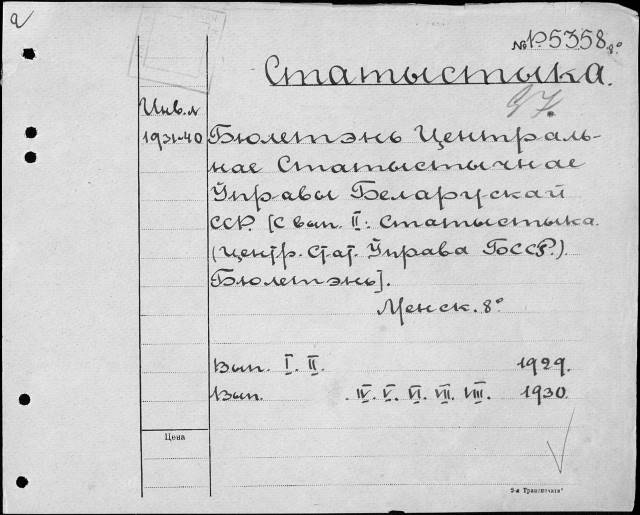 № 1Р5358.8°
Статыстыка.
97.
Инв.л
1931-40
Бюлетэнь Централь-
нае Статыстычнае
Ўправы Беларускай
ССР. [С вып. II: Статыстыка.
(Центр. Стат. Ўправа БССР.).
Бюлетэнь].
Менск. 8°
Вып. I. II. 1929.
Вып. IV. V. VI. VII. VIII. 1930.
Цена